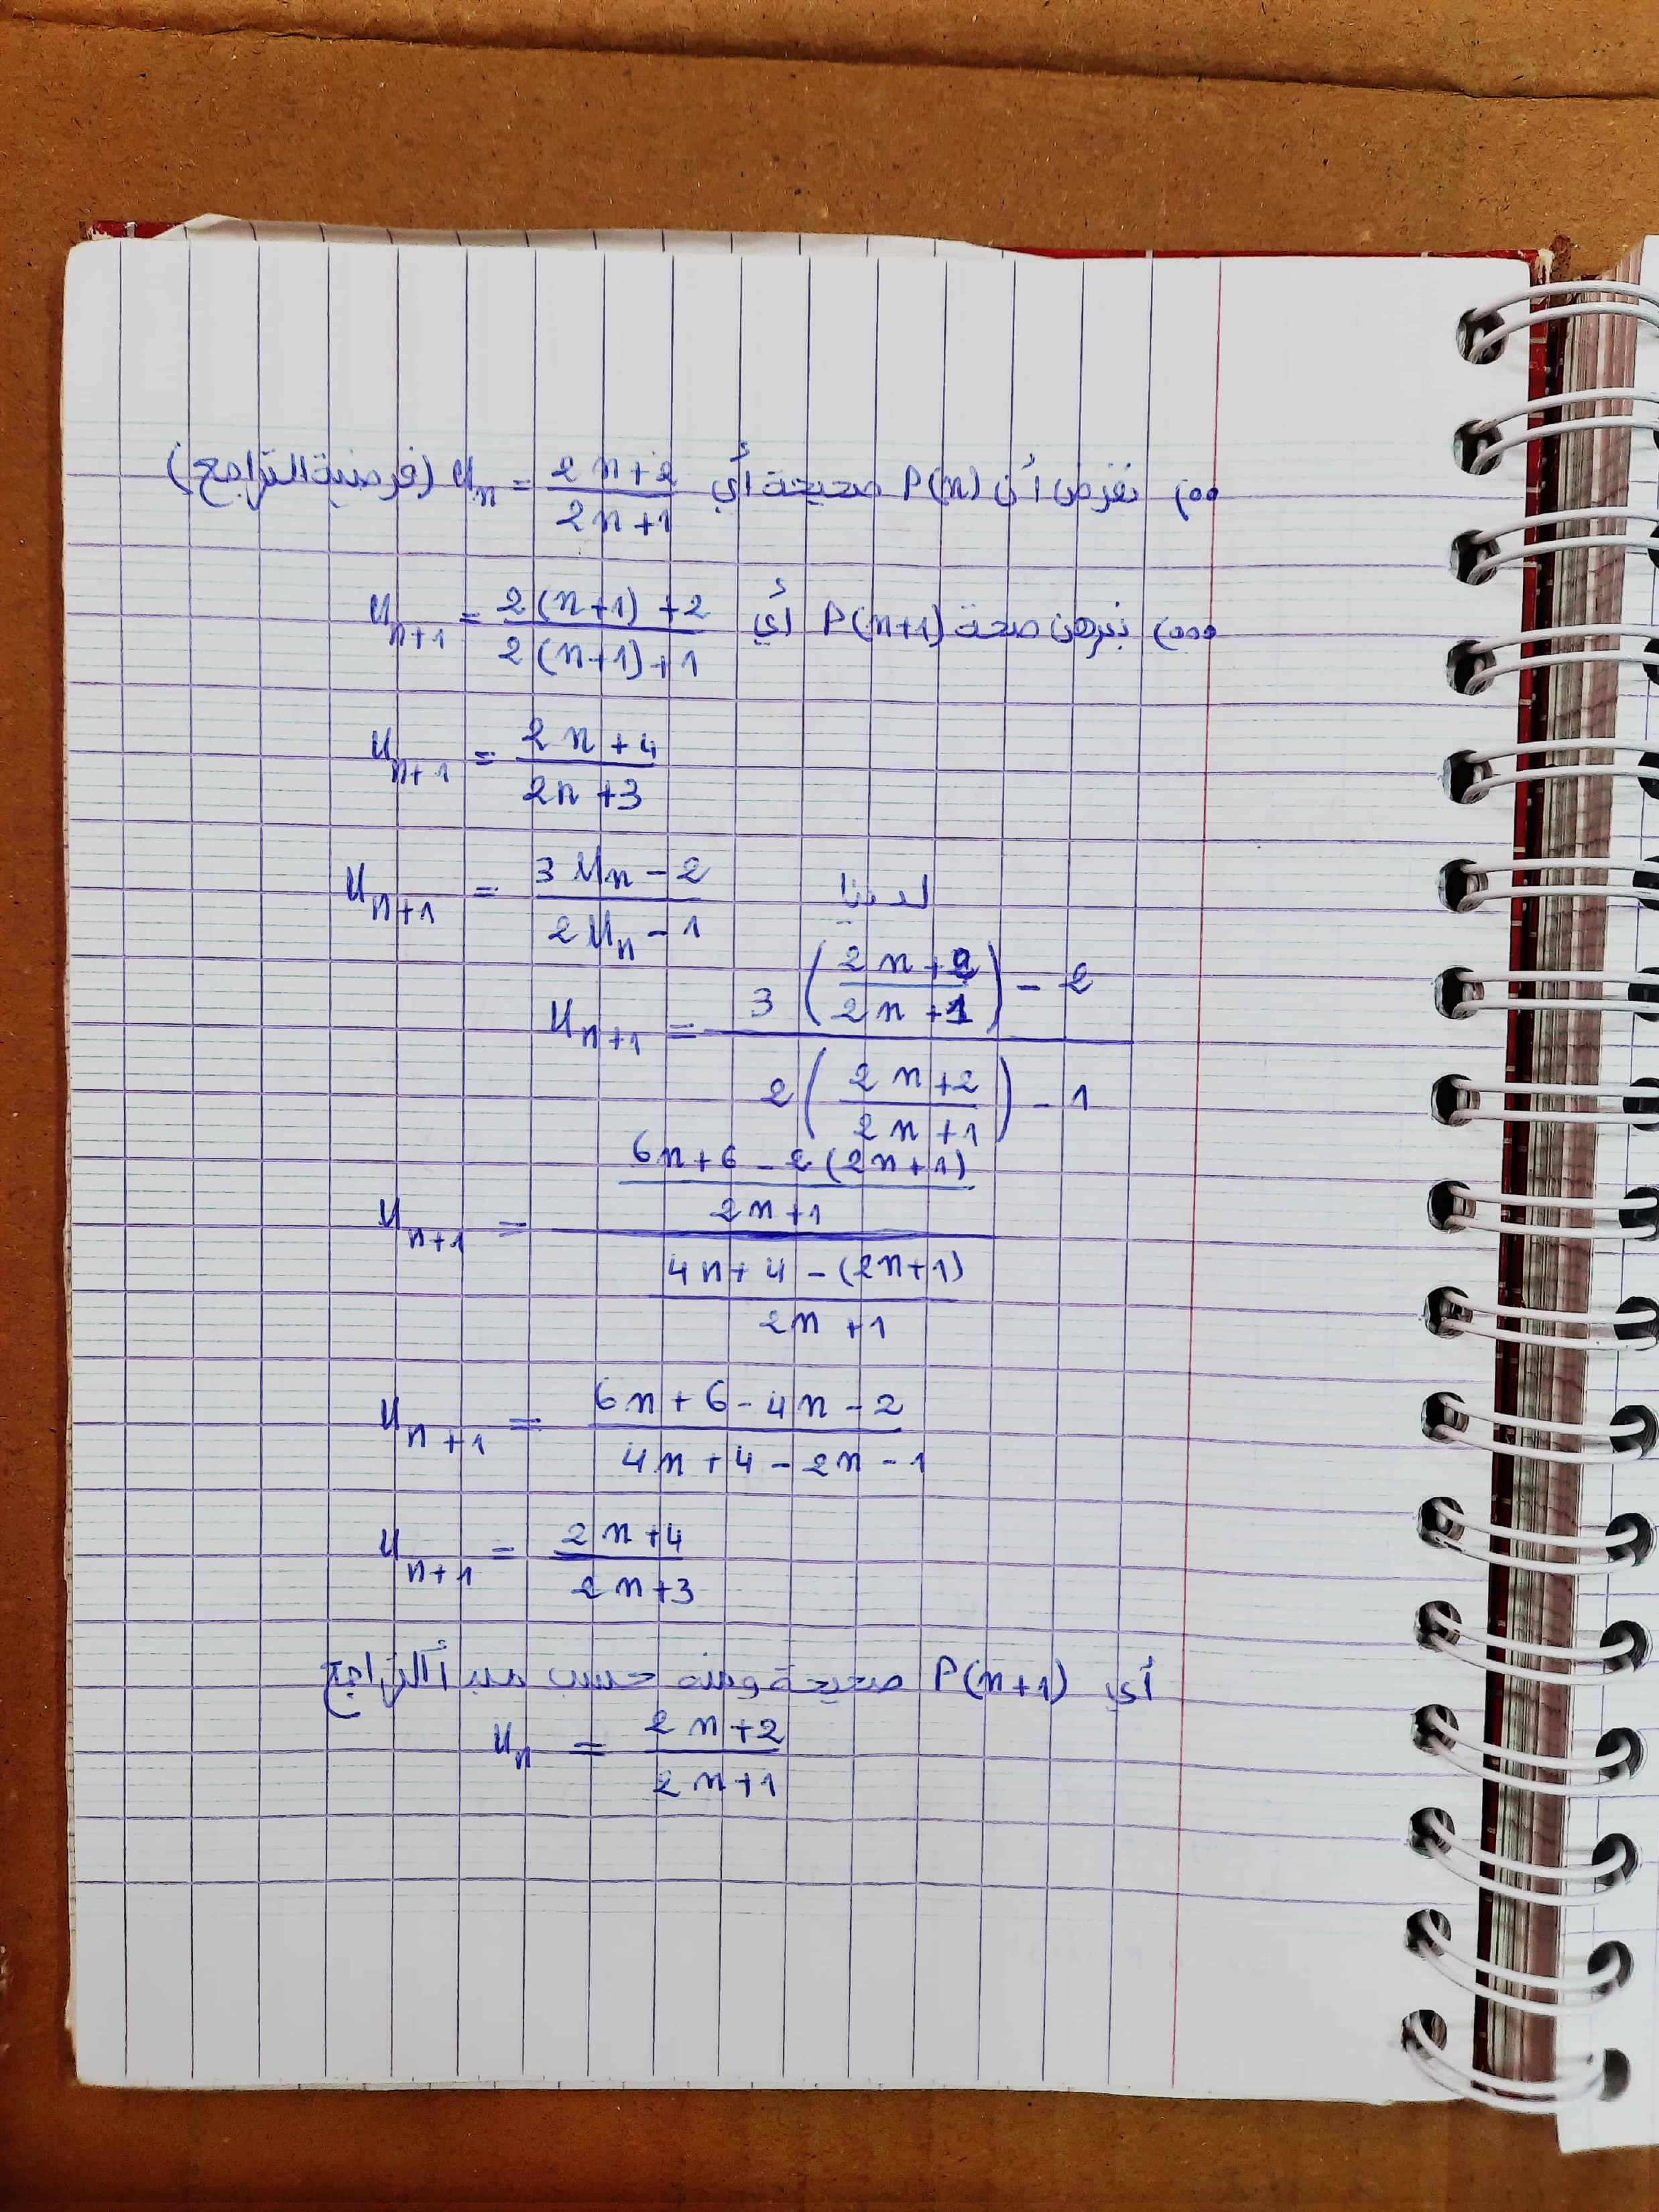 (.. نفرض أن P(n) صحيحة أي U_n = (2n+2)/(2n+1) (فرضية التراجع)
(... نبرهن صحة P(n+1) أي U_{n+1} = (2(n+1)+2)/(2(n+1)+1)
U_{n+1} = (2n+4)/(2n+3)
لدينا U_{n+1} = (3U_n - 2)/(2U_n - 1)
U_{n+1} = (3((2n+2)/(2n+1)) - 2)/(2((2n+2)/(2n+1)) - 1)
U_{n+1} = ((6n+6-2(2n+1))/(2n+1))/((4n+4-(2n+1))/(2n+1))
U_{n+1} = (6n+6-4n-2)/(4n+4-2n-1)
U_{n+1} = (2n+4)/(2n+3)
أي P(n+1) صحيحة ومنه حسب مبدأ التراجع
U_n = (2n+2)/(2n+1)